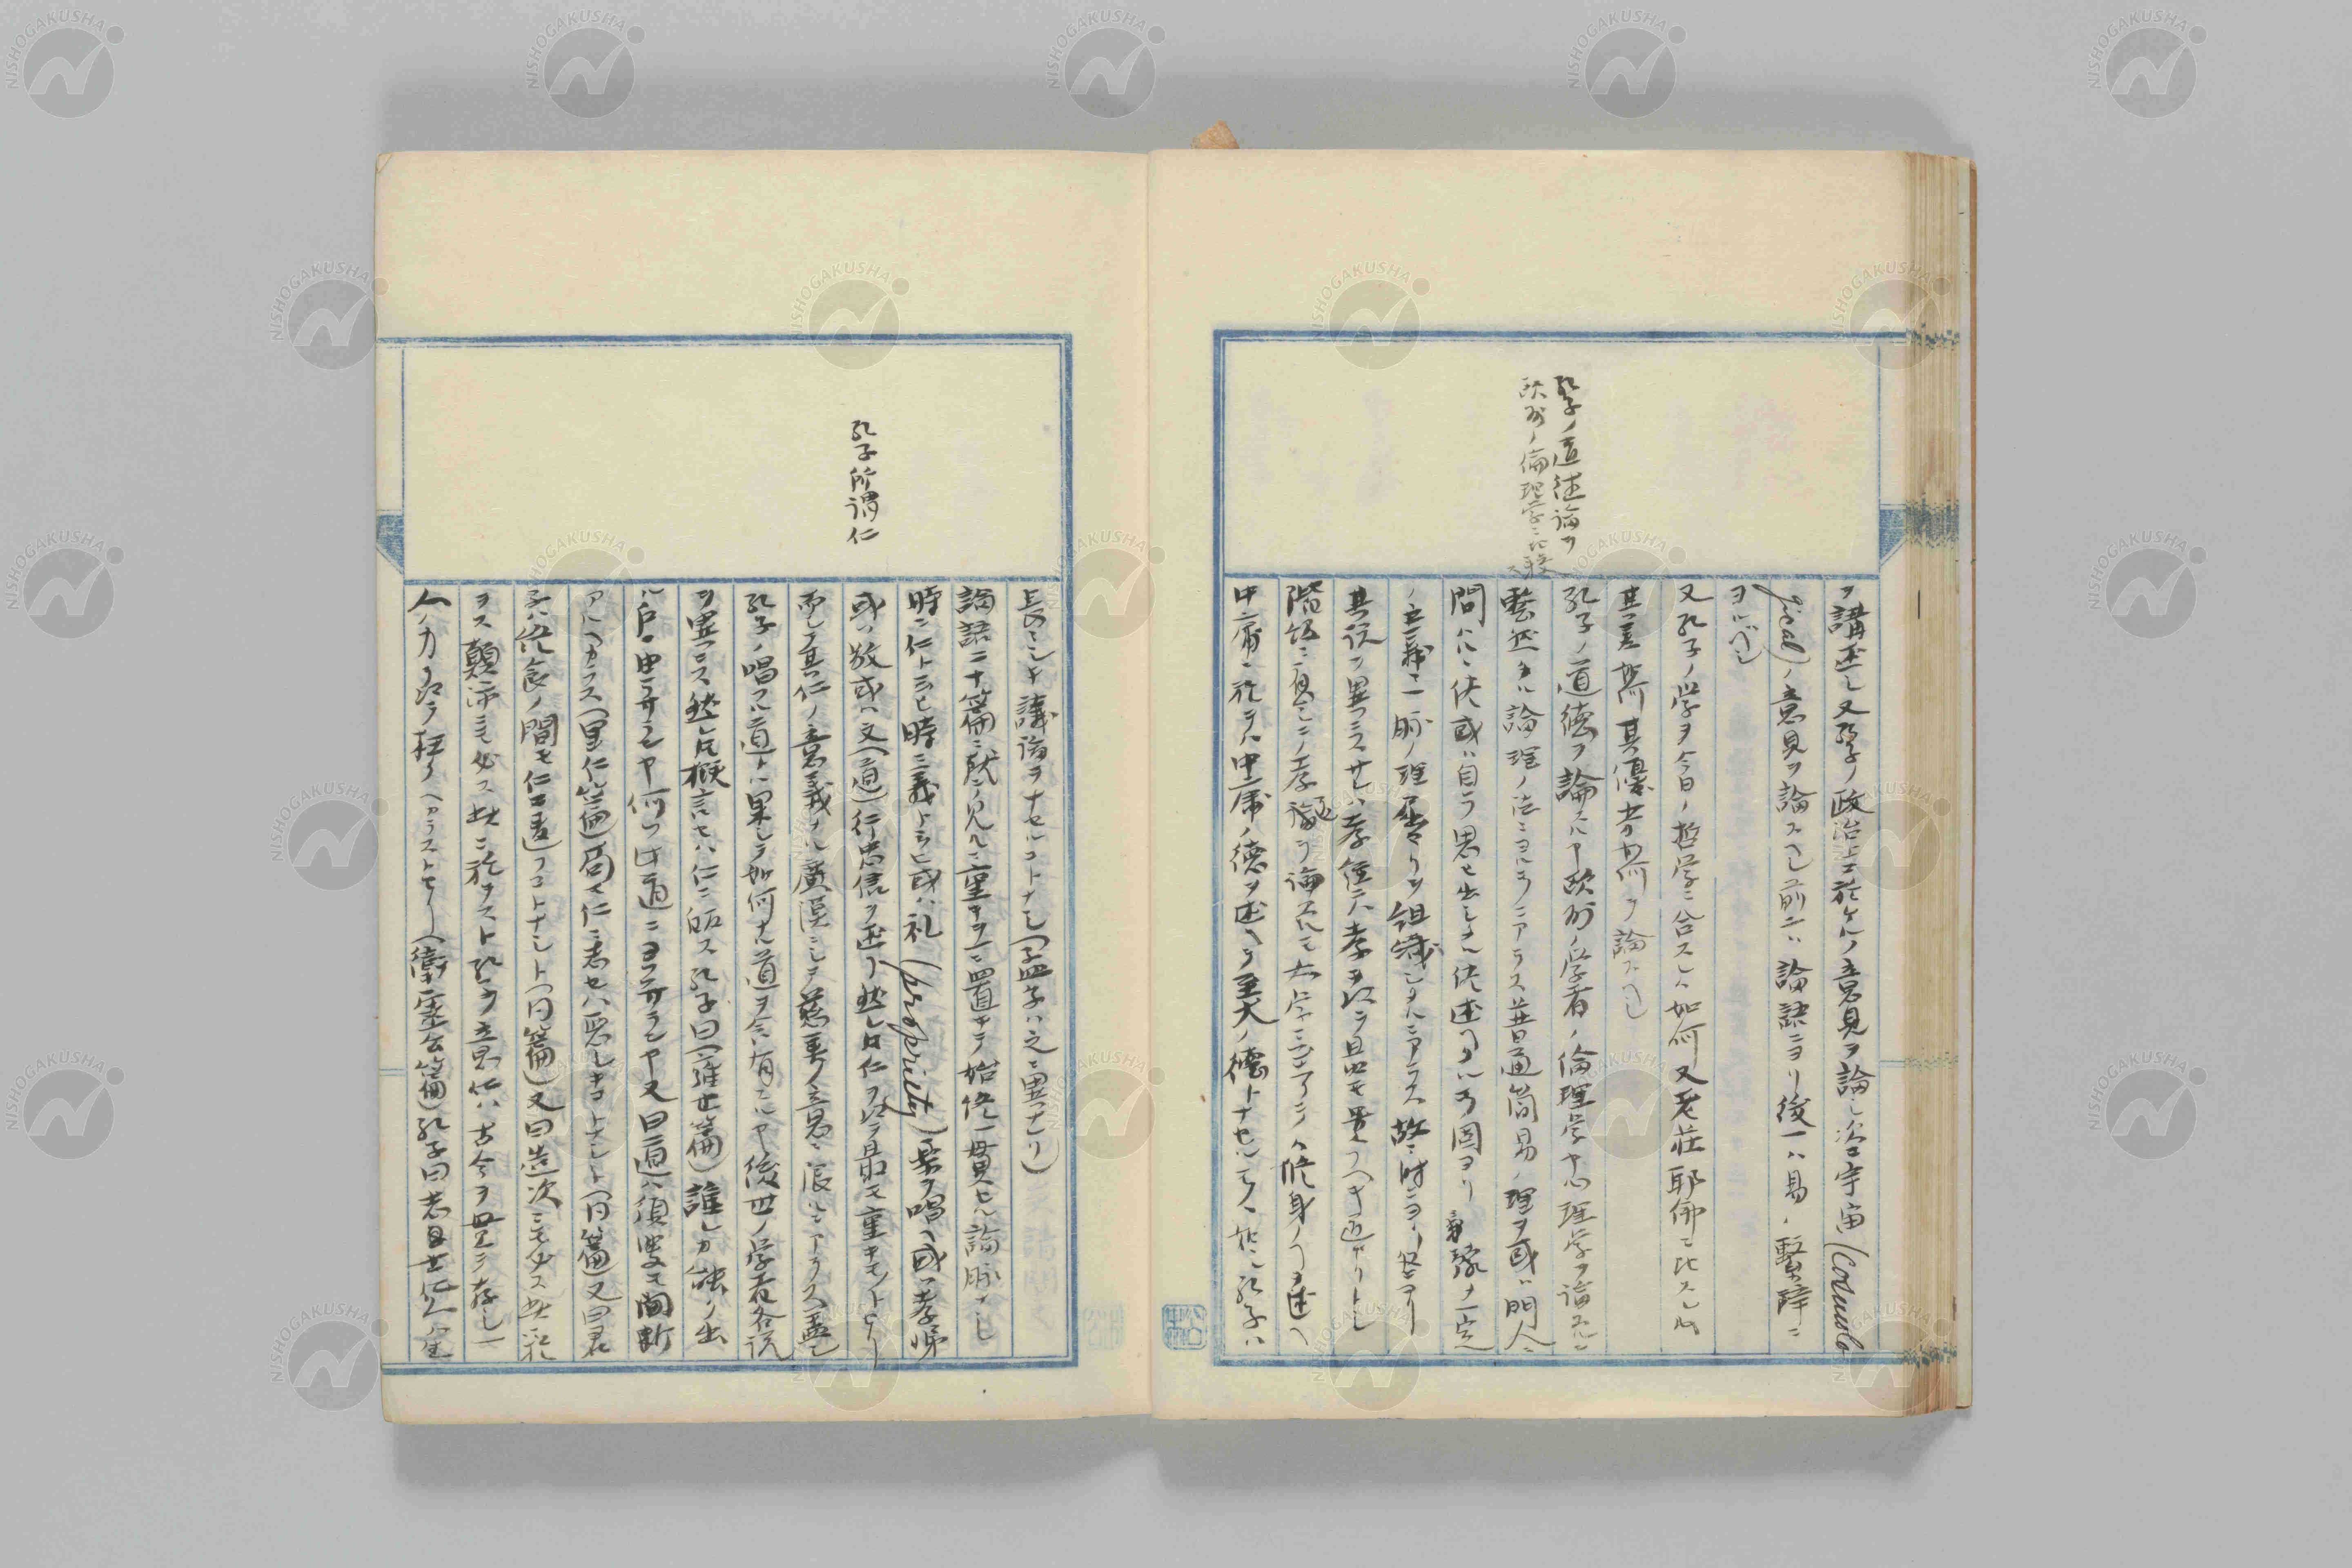 孔子ノ道徳論ヲ
欧州ノ倫理学ニ比較ス
ヲ講述シ又孔子ノ政治上ニ於ケルノ意見ヲ論シ次ニ宇宙(Cosmolo
gical)ノ意見ヲ論スヘシ前二ハ論語ニヨリ後一ハ易ノ繋辞ニ
ヨルベシ
又孔子ノ学ヲ今日ノ哲学ニ合スレハ如何又老荘耶佛ニ比スレハ
其差如何其優劣如何ヲ論スヘシ
孔子ノ道徳ヲ論スルヤ欧州ノ学者ノ倫理学ヤ心理学ヲ論スルニ
整然タル論理ノ法ニヨルヿニアラス普通簡易ノ理ヲ或ハ門人ニ
問ハレ或ハ自ラ思ヒ出シテ述ヘタルヿ故ヨリ一定
ノ主義ニ一脈ノ理屈ヨリ組織シタルニアラス故ニ時ニヨリ
其説ヲ異ニス サレハ孝経ニハ孝ヲ以テ最モ貴フヘキ道ナリトシ
階級ニ応シテノ孝ヲ論スルモ大学ニ至リテハ修身ノヿヲ述ヘ
中庸ニ於テハ中庸ノ徳ヲ述ヘテ至大ノ徳トナセルモノヽ如シ孔子ハ
孔子所謂仁
長シキ議論ヲナセルコトナシ(孟子ハ之ニ異ナリ)
論語二十篇ニ就テ見ルニ重キヲ一ニ置キテ始終一貫セル論脈ナシ
時ニ仁ト云ヒ時ニ義ト云ヒ或ハ礼(propriety)楽ヲ唱ヘ或ハ孝悌
或ハ敬或ハ文(道)行忠信ヲ述フ然レトモ仁ヲ以テ最モ重キモノトセリ
而シテ其仁ノ意義ナル廣漠ニシテ慈善ノ意ニ限ルニアラス蓋シ
孔子ノ唱フル道トハ果シテ如何ナル道ヲ含有スルヤ後世ノ学者各説
ヲ異ニス然レトモ概言セハ仁ニ帰ス孔子曰(雍也篇)誰レカ能ク出
ルニ戸ニ由ラサランヤ何ソ此道ニヨラサランヤ又曰道ハ須臾モ間断
アルヘカラス(里仁篇)苟モ仁ニ志セハ悪シキコトナシト(同篇)又曰君
子ハ終食ノ間モ仁ニ違フコトナシト(同篇)又曰造次ニモ必ス此ニ於
テス顛沛ニモ必ス此ニ於テスト孔子ノ意仁ハ古今ヲ亘リテ存シ一
人ノ力ヲ以テ枉クヘカラストセリ(衛霊公篇)孔子曰志士仁人ハ生